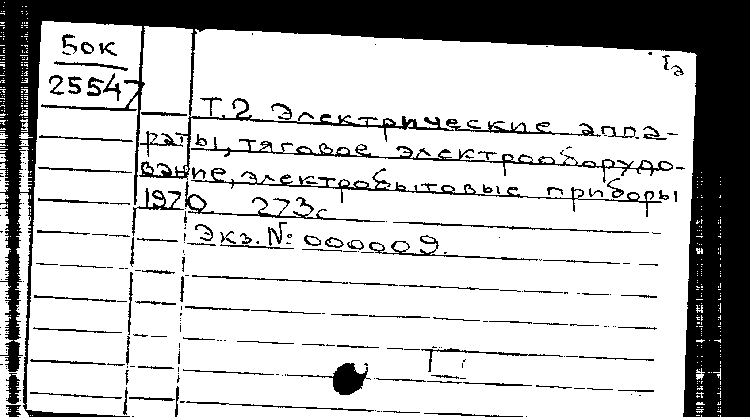 50к
25547
Т.2 Электрические аппа-
раты, тяговое электрооборудо-
вание, электробытовые приборы
1970 273с
Экз. №: 000009.